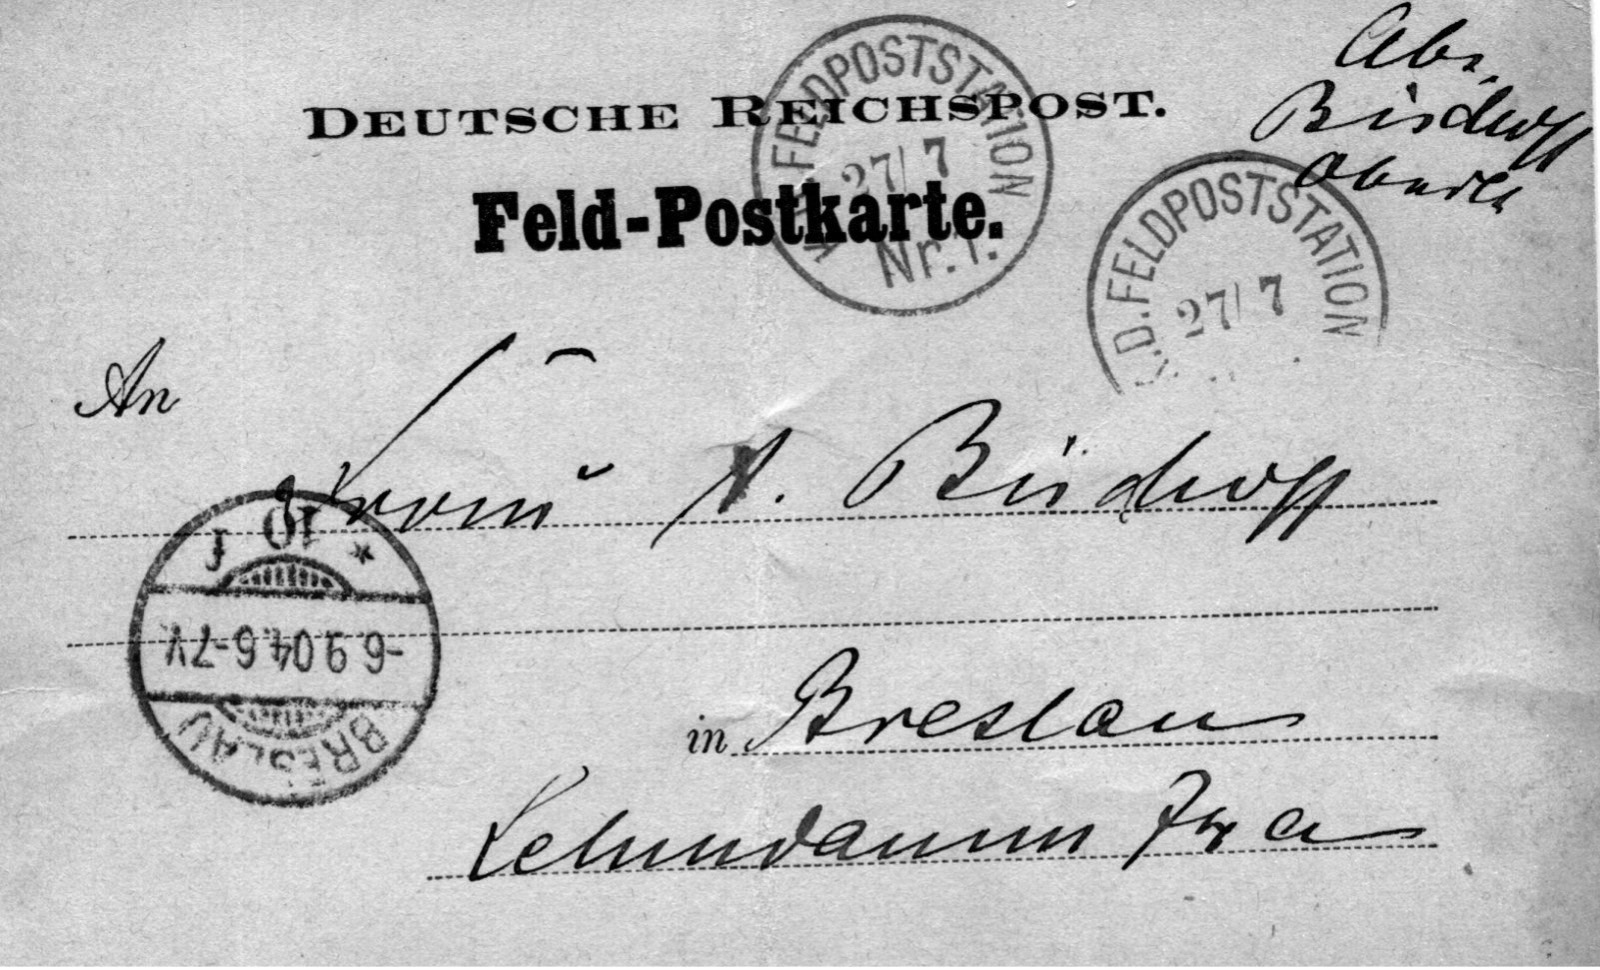 DEUTSCHE REICHSPOST.
Feld-Postkarte.
K.D. FELDPOSTSTATION
27/7
Nr. 1.
Abs.
Bischoff
.D. FELDPOSTSTATION
27/7
An
Frau A. Bischoff
in Breslau
Lehmdamm
BRESLAU
-6.9.04.6-7V.
* 10 f